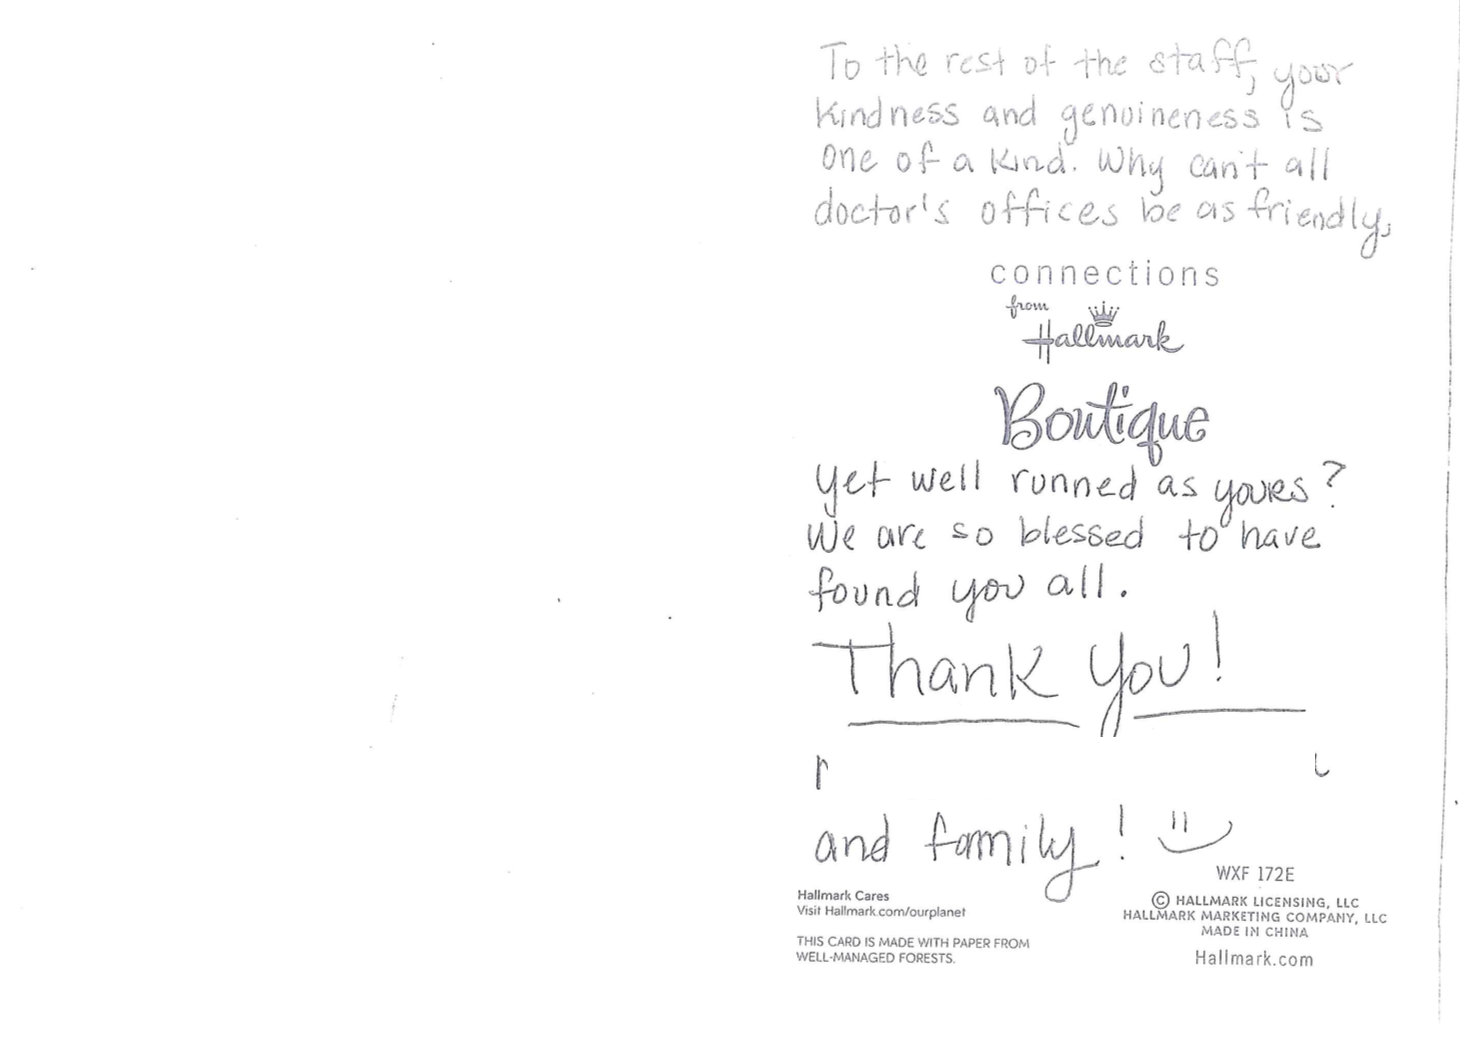 To the rest of the staff, your
kindness and genuineness is
one of a kind. Why can't all
doctor's offices be as friendly,
connections
from
Hallmark
Boutique
yet well runned as youres?
We are so blessed to have
found you all.
Thank you!
and family!
WXF 172E
Hallmark Cares
Visit Hallmark.com/ourplanet
THIS CARD IS MADE WITH PAPER FROM
WELL-MANAGED FORESTS.
© HALLMARK LICENSING, LLC
HALLMARK MARKETING COMPANY, LLC
MADE IN CHINA
Hallmark.com